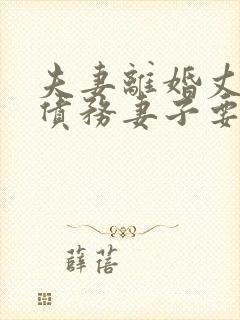 夫妻離婚丈
債務妻子要
薛蓓